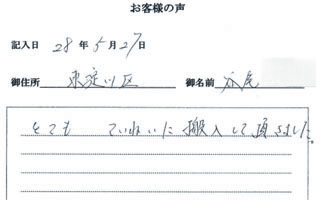 お客様の声
記入日 28年5月27日
御住所 東淀川区 御名前
とても ていねいに搬入して頂きました。